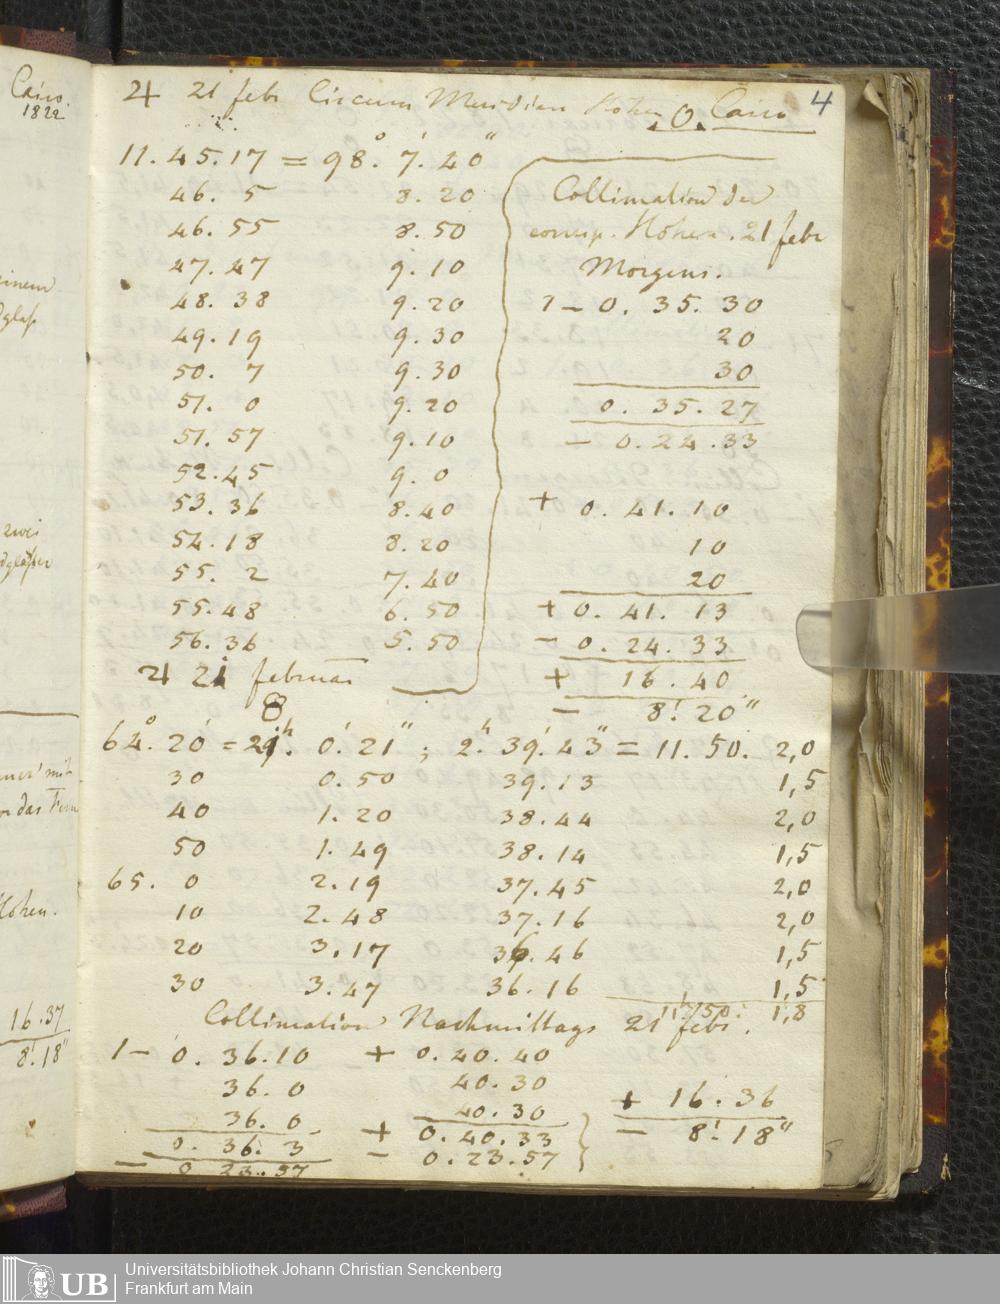 Cairo.
1822
einem
zwei
das Fern
Höhen.
16.37
8'.18"
♃ 21 febr Circum Meridian Höhen ☉ Cairo 4
11.45.17 = 98°. 7'. 40"
46. 5 8.20
46.55 8.50
47.47 9.10
48.38 9.20
49.19 9.30
50. 7 9.30
51. 0 9.20
51.57 9.10
52.45 9. 0
53.36 8.40
54.18 8.20
55. 2 7.40
55.48 6.50
56.36 5.50
Collimation der
corresp. Höhen. 21 febr
Morgens.
1 – 0. 35. 30
20
30
0. 35. 27
– 0. 24. 33
+ 0. 41. 10
10
20
+ 0. 41. 13
– 0. 24. 33
+ 16. 40
– 8'. 20"
♃ 21 februar
8
64°. 20' = 21h. 0'. 21"; 2h. 39'. 43" = 11. 50. 2,0
30 0.50 39.13 1,5
40 1.20 38.44 2,0
50 1.49 38.14 1,5
65. 0 2.19 37.45 2,0
10 2.48 37.16 2,0
20 3.17 36.46 1,5
30 3.47 36.16 1,5
11h50'. 1,8
Collimation Nachmittags 21 febr.
1 – 0. 36.10 + 0. 40. 40
36. 0 40.30
36. 0 40.30 + 16. 36
0. 36. 3 + 0. 40. 33 – 8'. 18"
– 0 23. 57 – 0. 23. 57
UB
Universitätsbibliothek Johann Christian Senckenberg
Frankfurt am Main